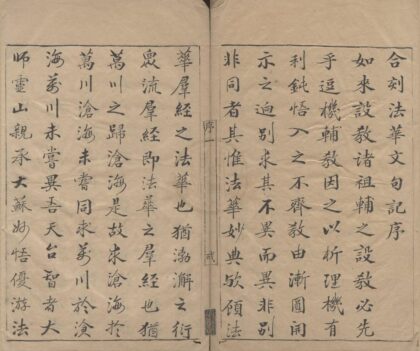 合刻法華文句記序
如來設教諸祖輔之設教必先
乎逗機輔教因之以析理機有
利鈍悟入之不齊教由漸圓開
示之逈別求其不異而異非別
非同者其惟法華妙典歟顧法
序一
貳
華羣經之法華也猶渤澥之衍
衆流羣經即法華之羣經也猶
萬川之歸滄海是故求滄海於
萬川滄海未嘗同求萬川於滄
海萬川未嘗異吾天台智者大
師靈山親承大蘇妙悟優游法